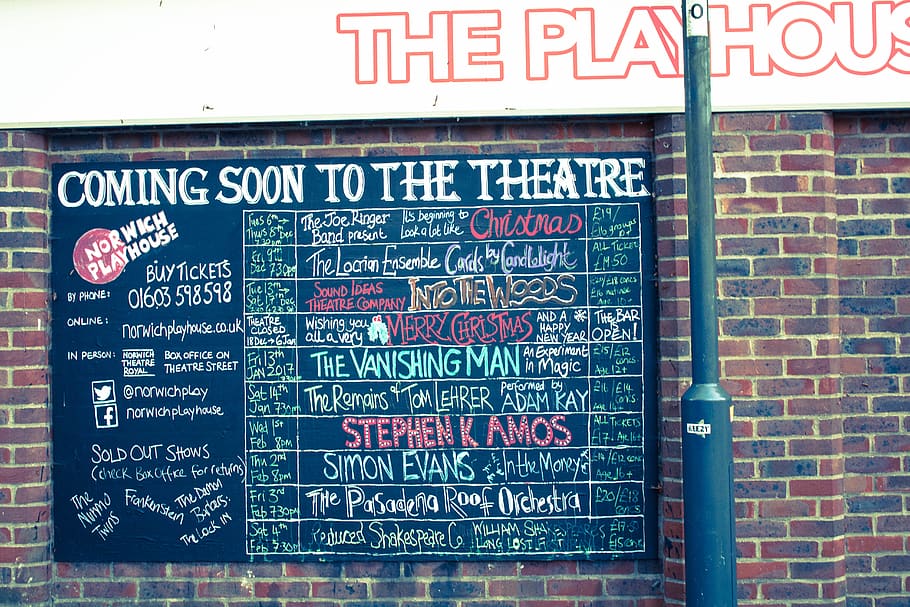 THE PLAYHOUS
COMING SOON TO THE THEATRE
NORWICH
PLAYHOUSE
BUY TICKETS
BY PHONE: 01603 598598
ONLINE: norwichplayhouse.co.uk
IN PERSON: NORWICH THEATRE ROYAL BOX OFFICE ON THEATRE STREET
@norwichplay
norwichplayhouse
SOLD OUT SHOWS
(check Box Office for returns)
The Nimmo Twins
Frankenstein
The Lock In
Tues 6th
Thurs 8th Dec
7.30pm
The Joe Ringer Band present
It's beginning to look a lot like Christmas
£19/
Fri 9th
Dec 7.30pm
The Locrian Ensemble Carols by Candlelight
ALL TICKETS
£19.50
Tue 13th
Sat 17th Dec
SOUND IDEAS THEATRE COMPANY
INTO THE WOODS
THEATRE CLOSED
18 Dec - 6 Jan
Wishing you all a very MERRY CHRISTMAS AND A HAPPY NEW YEAR
THE BAR IS OPEN!
Fri 13th
JAN 2017
THE VANISHING MAN An Experiment in Magic
£15/£12
concs
Age 12+
Sat 14th
Jan 7.30pm
The Remains of TOM LEHRER performed by ADAM KAY
£16/£14
concs
Age 14+
Wed 1st
Feb 8pm
STEPHEN K AMOS
ALL TICKETS
£17 - Age 14+
Thu 2nd
Feb 8pm
SIMON EVANS In the Money
Age 16+
Fri 3rd
Feb 7.30pm
The Pasadena Roof Orchestra
£20/£18
concs
Sat 4th
Feb 7.30
Reduced Shakespeare Co.
WILLIAM
LONG LOST FIRST
concs